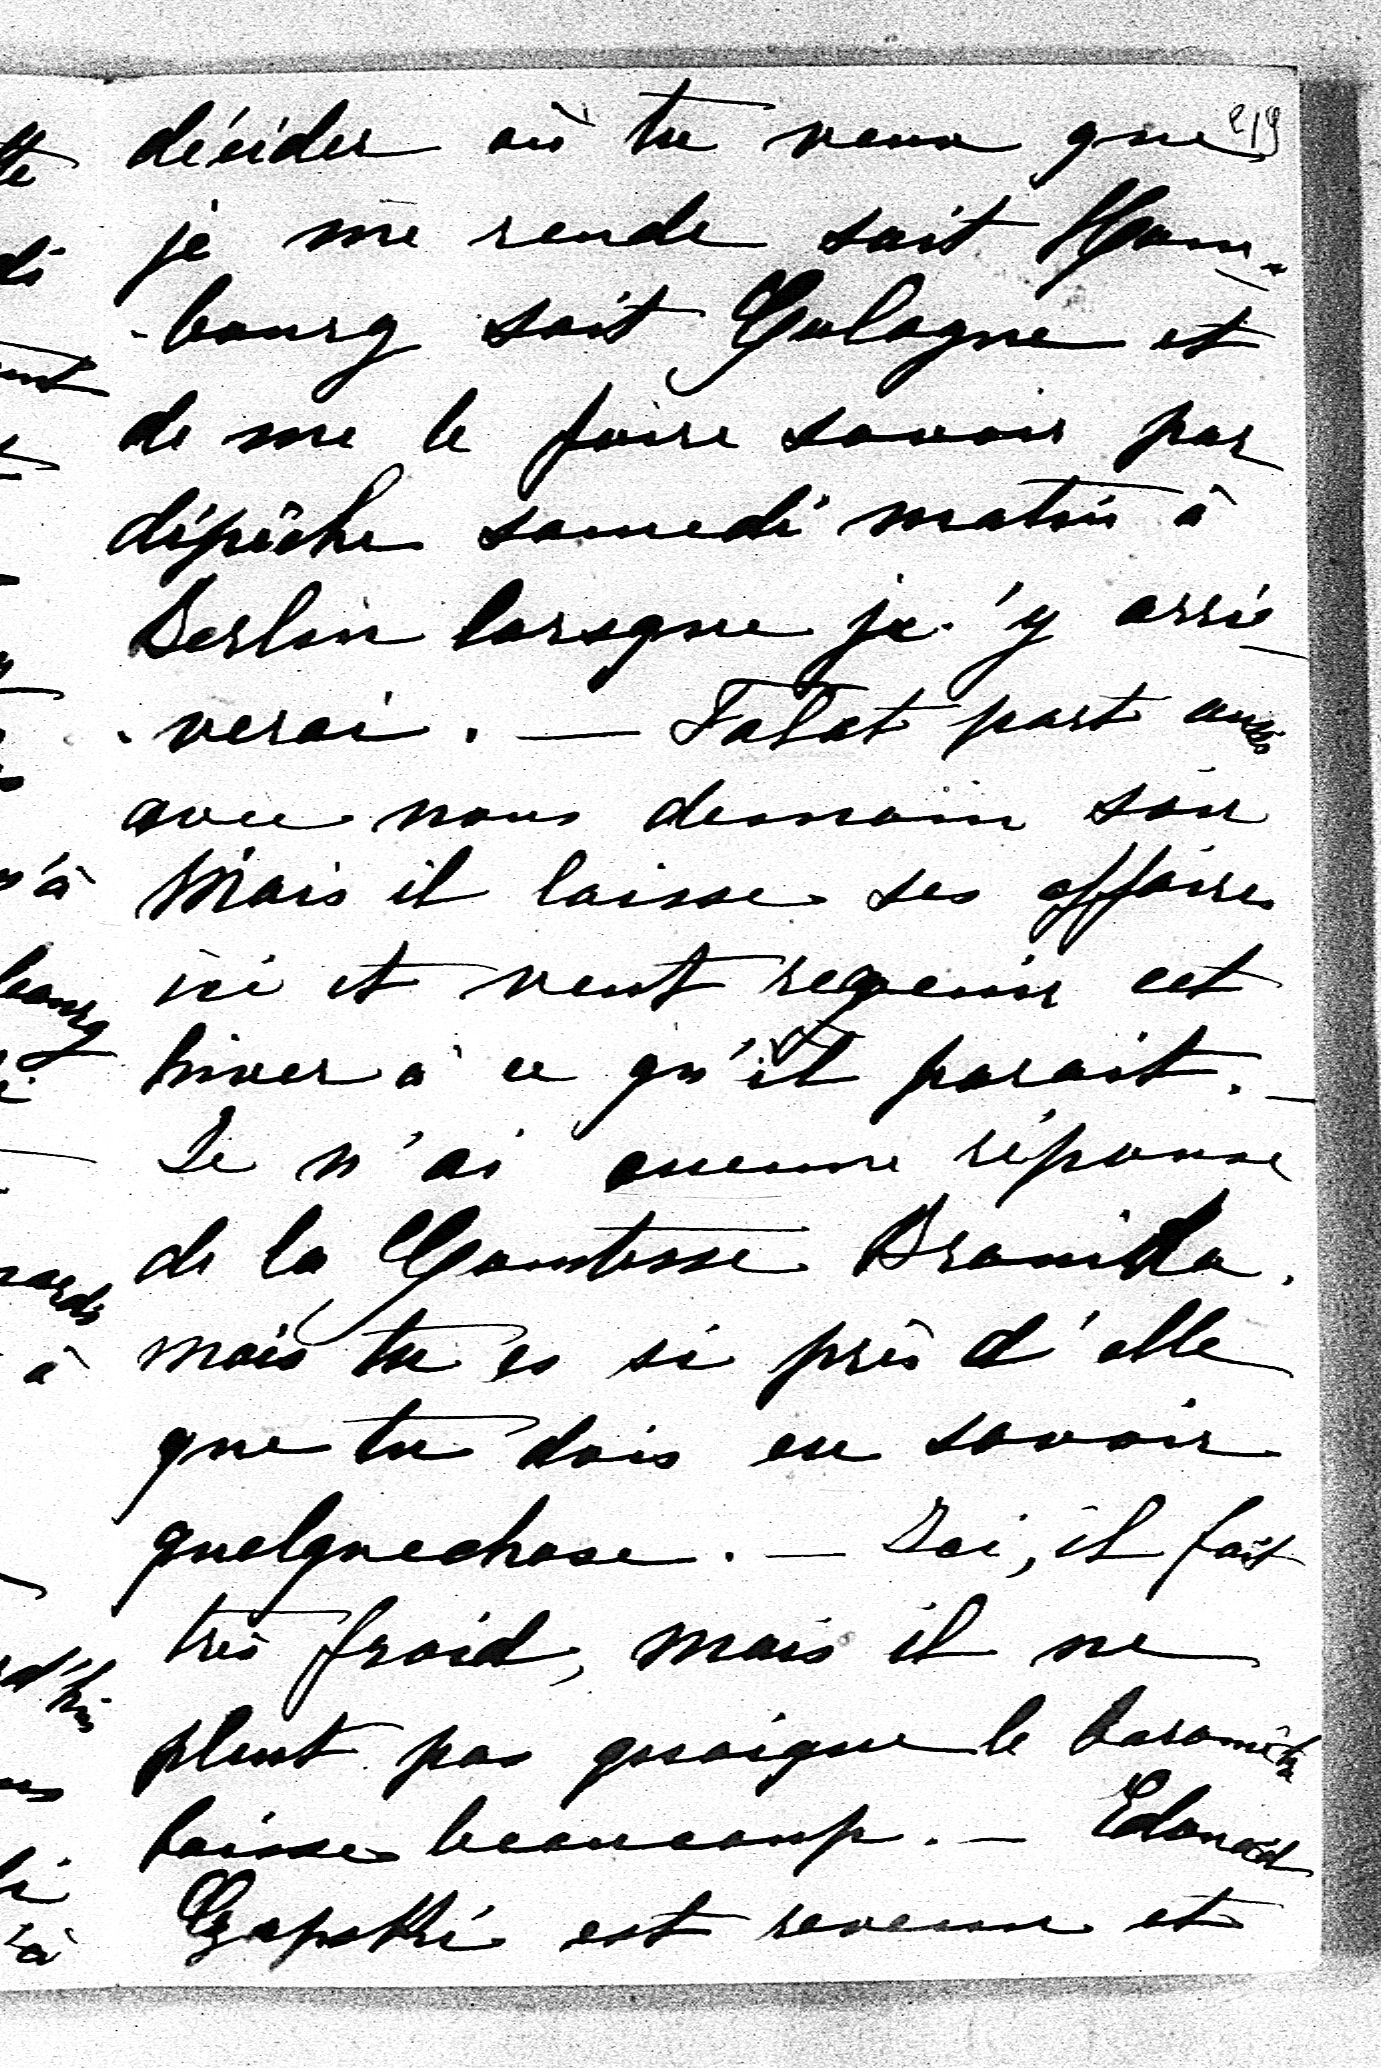 219
décider où tu veux que
je me rende soit Ham-
-bourg soit Cologne et
de me le faire savoir par
dépêche samedi matin à
Berlin lorsque je'y arri-
-verai. — Falat part aussi
avec nous demain soir
Mais il laisse ses affaires
ici et veut revenir cet
hiver à ce qu'il parait. —
Je n'ai aucune réponse
de la Comtesse Branicka.
mais tu es si près d'elle
que tu dois en savoir
quelquechose. — Ici, il fait
très froid, mais il ne
pleut pas quoique le baromètre
baisse beaucoup. — Edouard
Czapski est revenu et